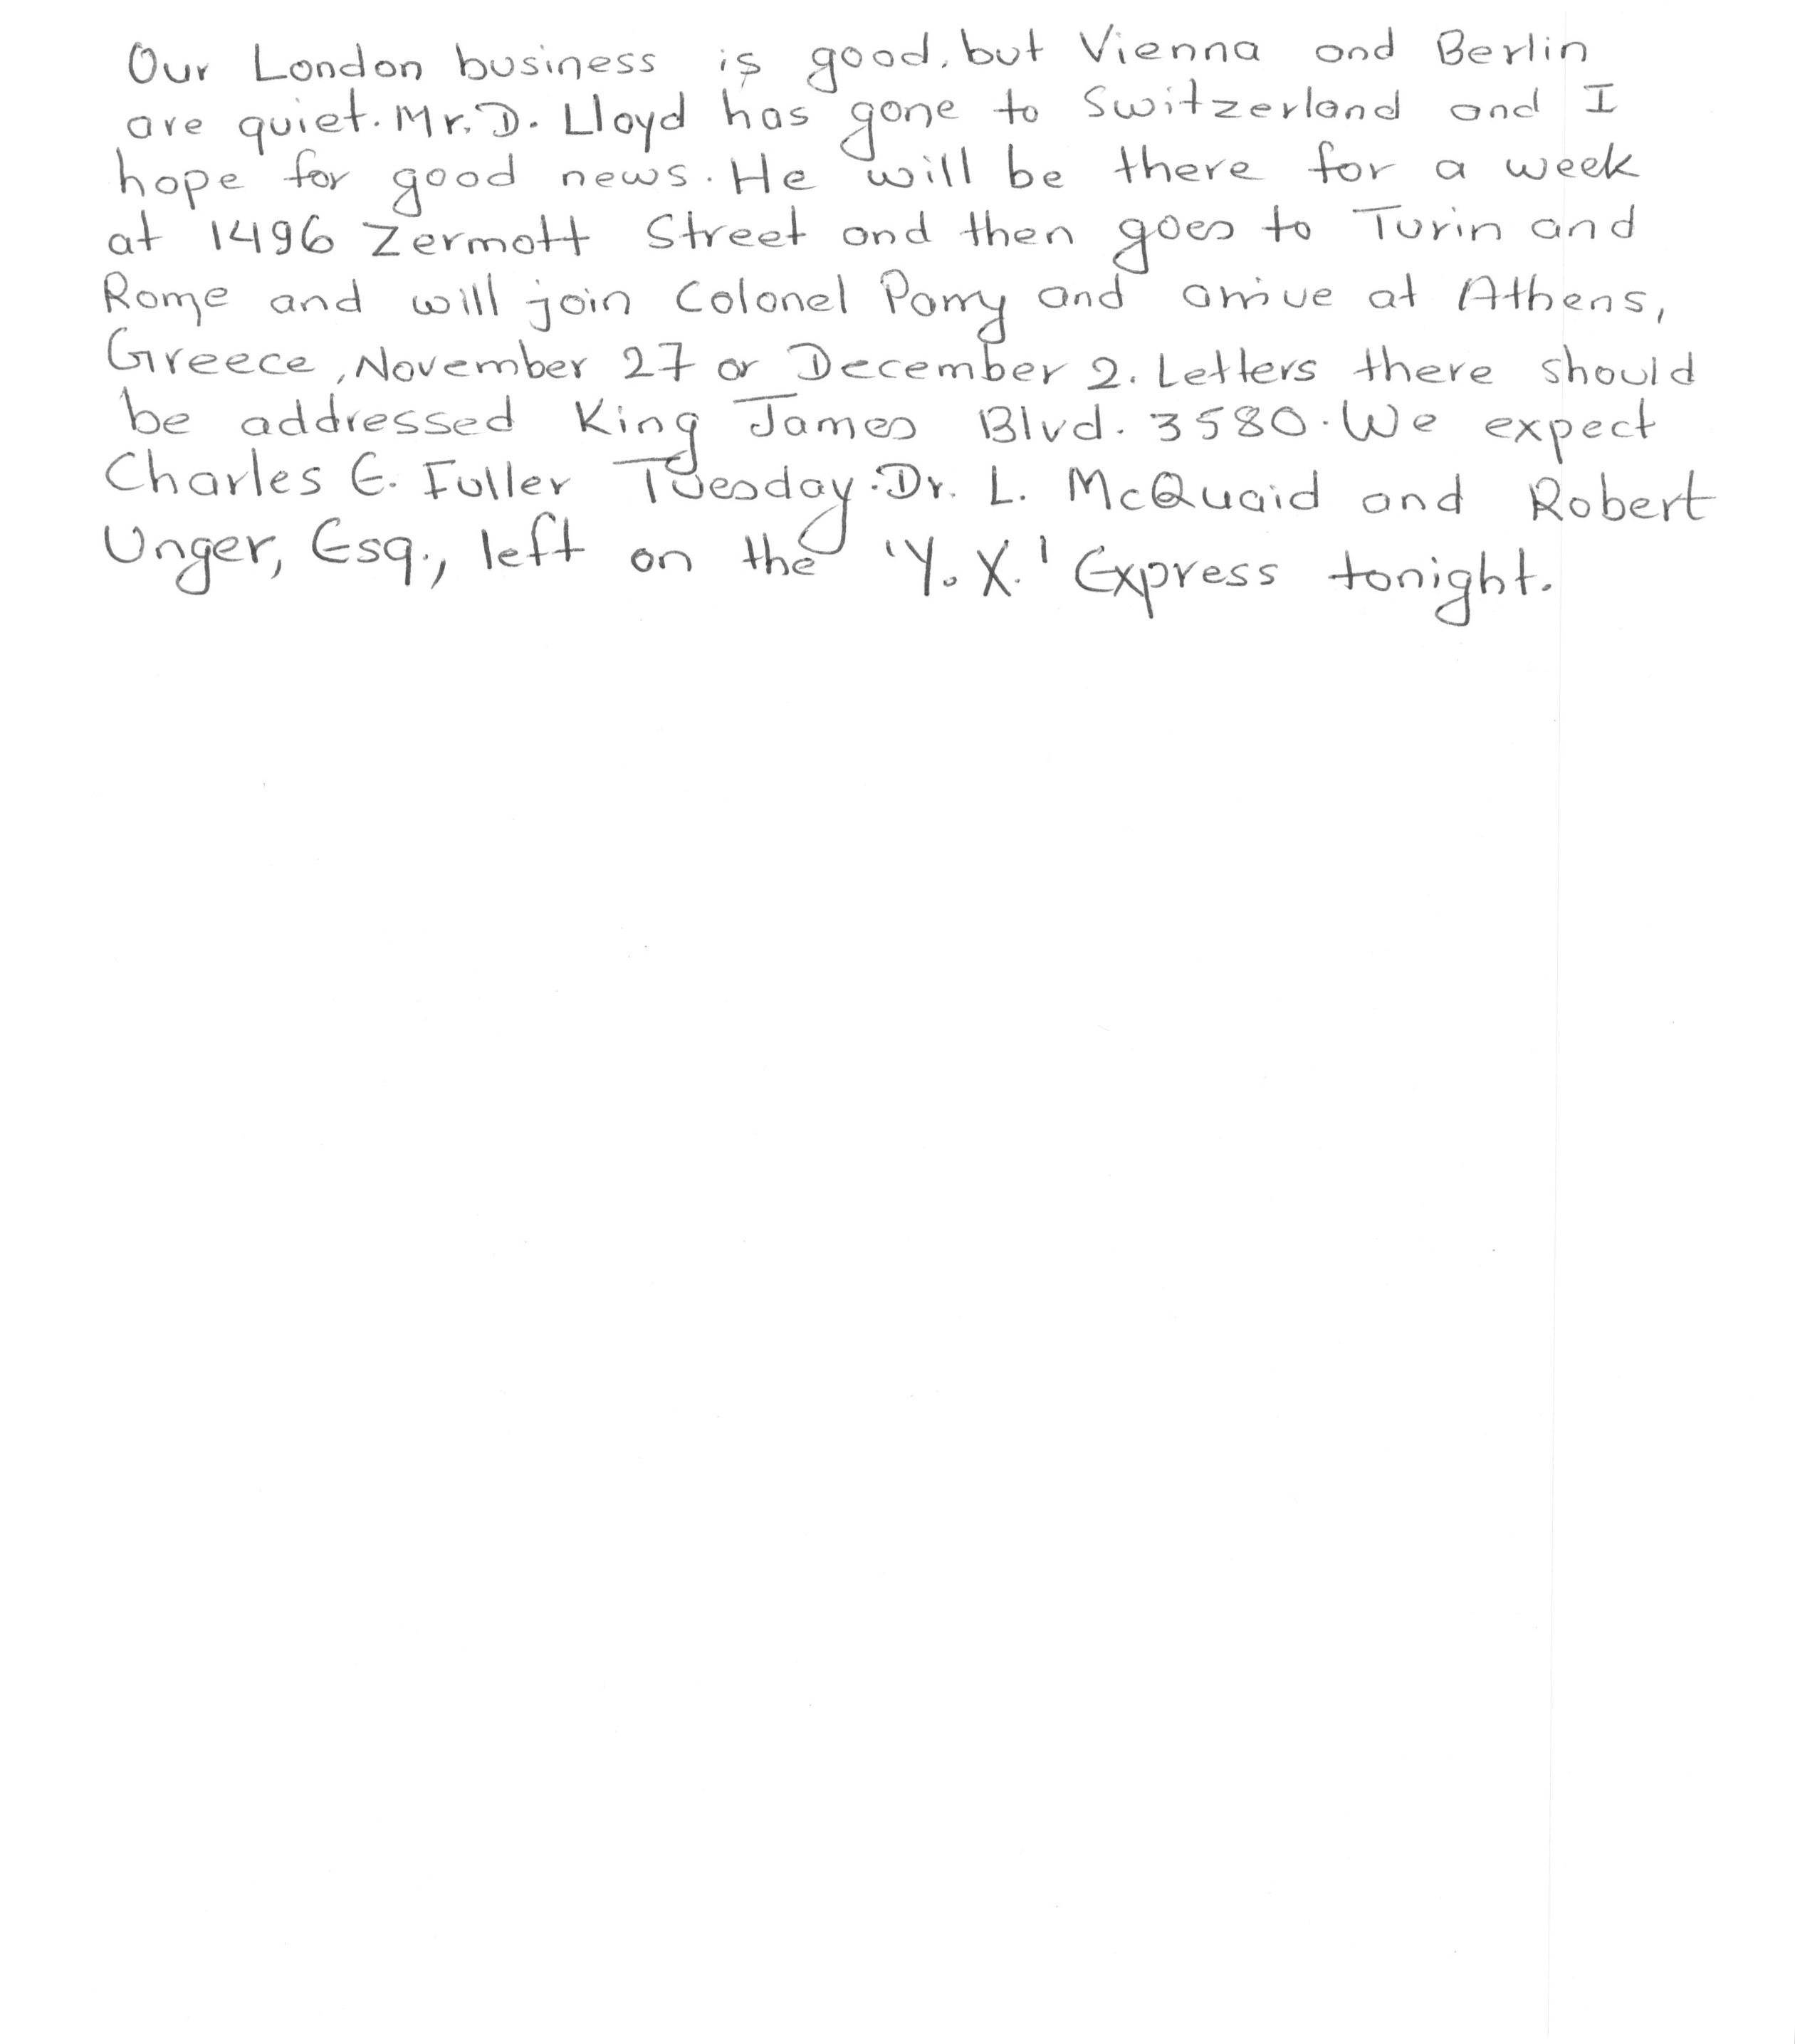 Our London business is good, but Vienna and Berlin
are quiet. Mr. D. Lloyd has gone to Switzerland and I
hope for good news. He will be there for a week
at 1496 Zermott Street and then goes to Turin and
Rome and will join Colonel Parry and arrive at Athens,
Greece, November 27 or December 2. Letters there should
be addressed King James Blvd. 3580. We expect
Charles E. Fuller Tuesday. Dr. L. McQuaid and Robert
Unger, Esq., left on the 'Y. X.' Express tonight.